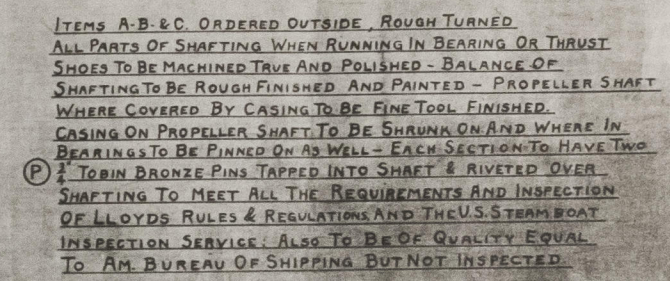 ITEMS A-B-&C. ORDERED OUTSIDE, ROUGH TURNED
ALL PARTS OF SHAFTING WHEN RUNNING IN BEARING OR THRUST
SHOES TO BE MACHINED TRUE AND POLISHED - BALANCE OF
SHAFTING TO BE ROUGH FINISHED AND PAINTED - PROPELLER SHAFT
WHERE COVERED BY CASING TO BE FINE TOOL FINISHED.
CASING ON PROPELLER SHAFT TO BE SHRUNK ON AND WHERE IN
BEARINGS TO BE PINNED ON AS WELL - EACH SECTION TO HAVE TWO
P 1/4" TOBIN BRONZE PINS TAPPED INTO SHAFT & RIVETED OVER
SHAFTING TO MEET ALL THE REQUIREMENTS AND INSPECTION
OF LLOYDS RULES & REGULATIONS, AND THE U.S. STEAMBOAT
INSPECTION SERVICE: ALSO TO BE OF QUALITY EQUAL
TO AM. BUREAU OF SHIPPING BUT NOT INSPECTED.